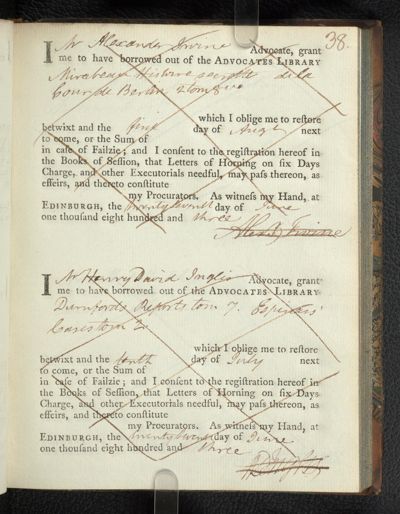 38.
I Mr Alexander Irvine Advocate, grant
me to have borrowed out of the ADVOCATES LIBRARY
Mirabeau Histoire secrette de la
Cour de Berlin 2 tom 8vo
which I oblige me to restore
betwixt and the first day of Augt next
to come, or the Sum of
in case of Failzie; and I consent to the registration hereof in
the Books of Session, that Letters of Horning on six Days
Charge, and other Executorials needful, may pass thereon, as
effeirs, and thereto constitute
my Procurators. As witness my Hand, at
EDINBURGH, the day of June
one thousand eight hundred and three
Alexr Irvine
I Mr Henry David Inglis Advocate, grant
me to have borrowed out of the ADVOCATES LIBRARY
Durnford's Reports tom 7. Espinass'
Cases tom 2
which I oblige me to restore
betwixt and the tenth day of July next
to come, or the Sum of
in case of Failzie; and I consent to the registration hereof in
the Books of Session, that Letters of Horning on six Days
Charge, and other Executorials needful, may pass thereon, as
effeirs, and thereto constitute
my Procurators. As witness my Hand, at
EDINBURGH, the day of June
one thousand eight hundred and three